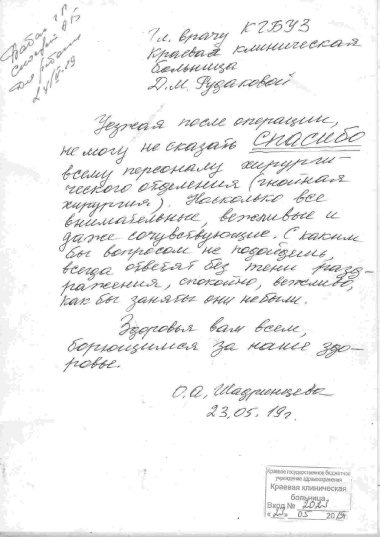 Гл. врачу КГБУЗ
Краевая клиническая
больница
Д.М. Рудаковой
Уезжая после операции,
не могу не сказать спасибо
всему персоналу хирурги-
ческого отделения (гнойная
хирургия). Насколько все
внимательные, вежливые и
даже сочувствующие. С каким
бы вопросом не подойдешь,
всегда ответят без тени разд-
ражения, спокойно, вежливо,
как бы заняты они не были.
Здоровья вам всем,
борющимся за наше здо-
ровье.
О.А. Шадринцева
23.05.19г.
Краевое государственное бюджетное
учреждение здравоохранения
Краевая клиническая
больница
Вход №
05 2019